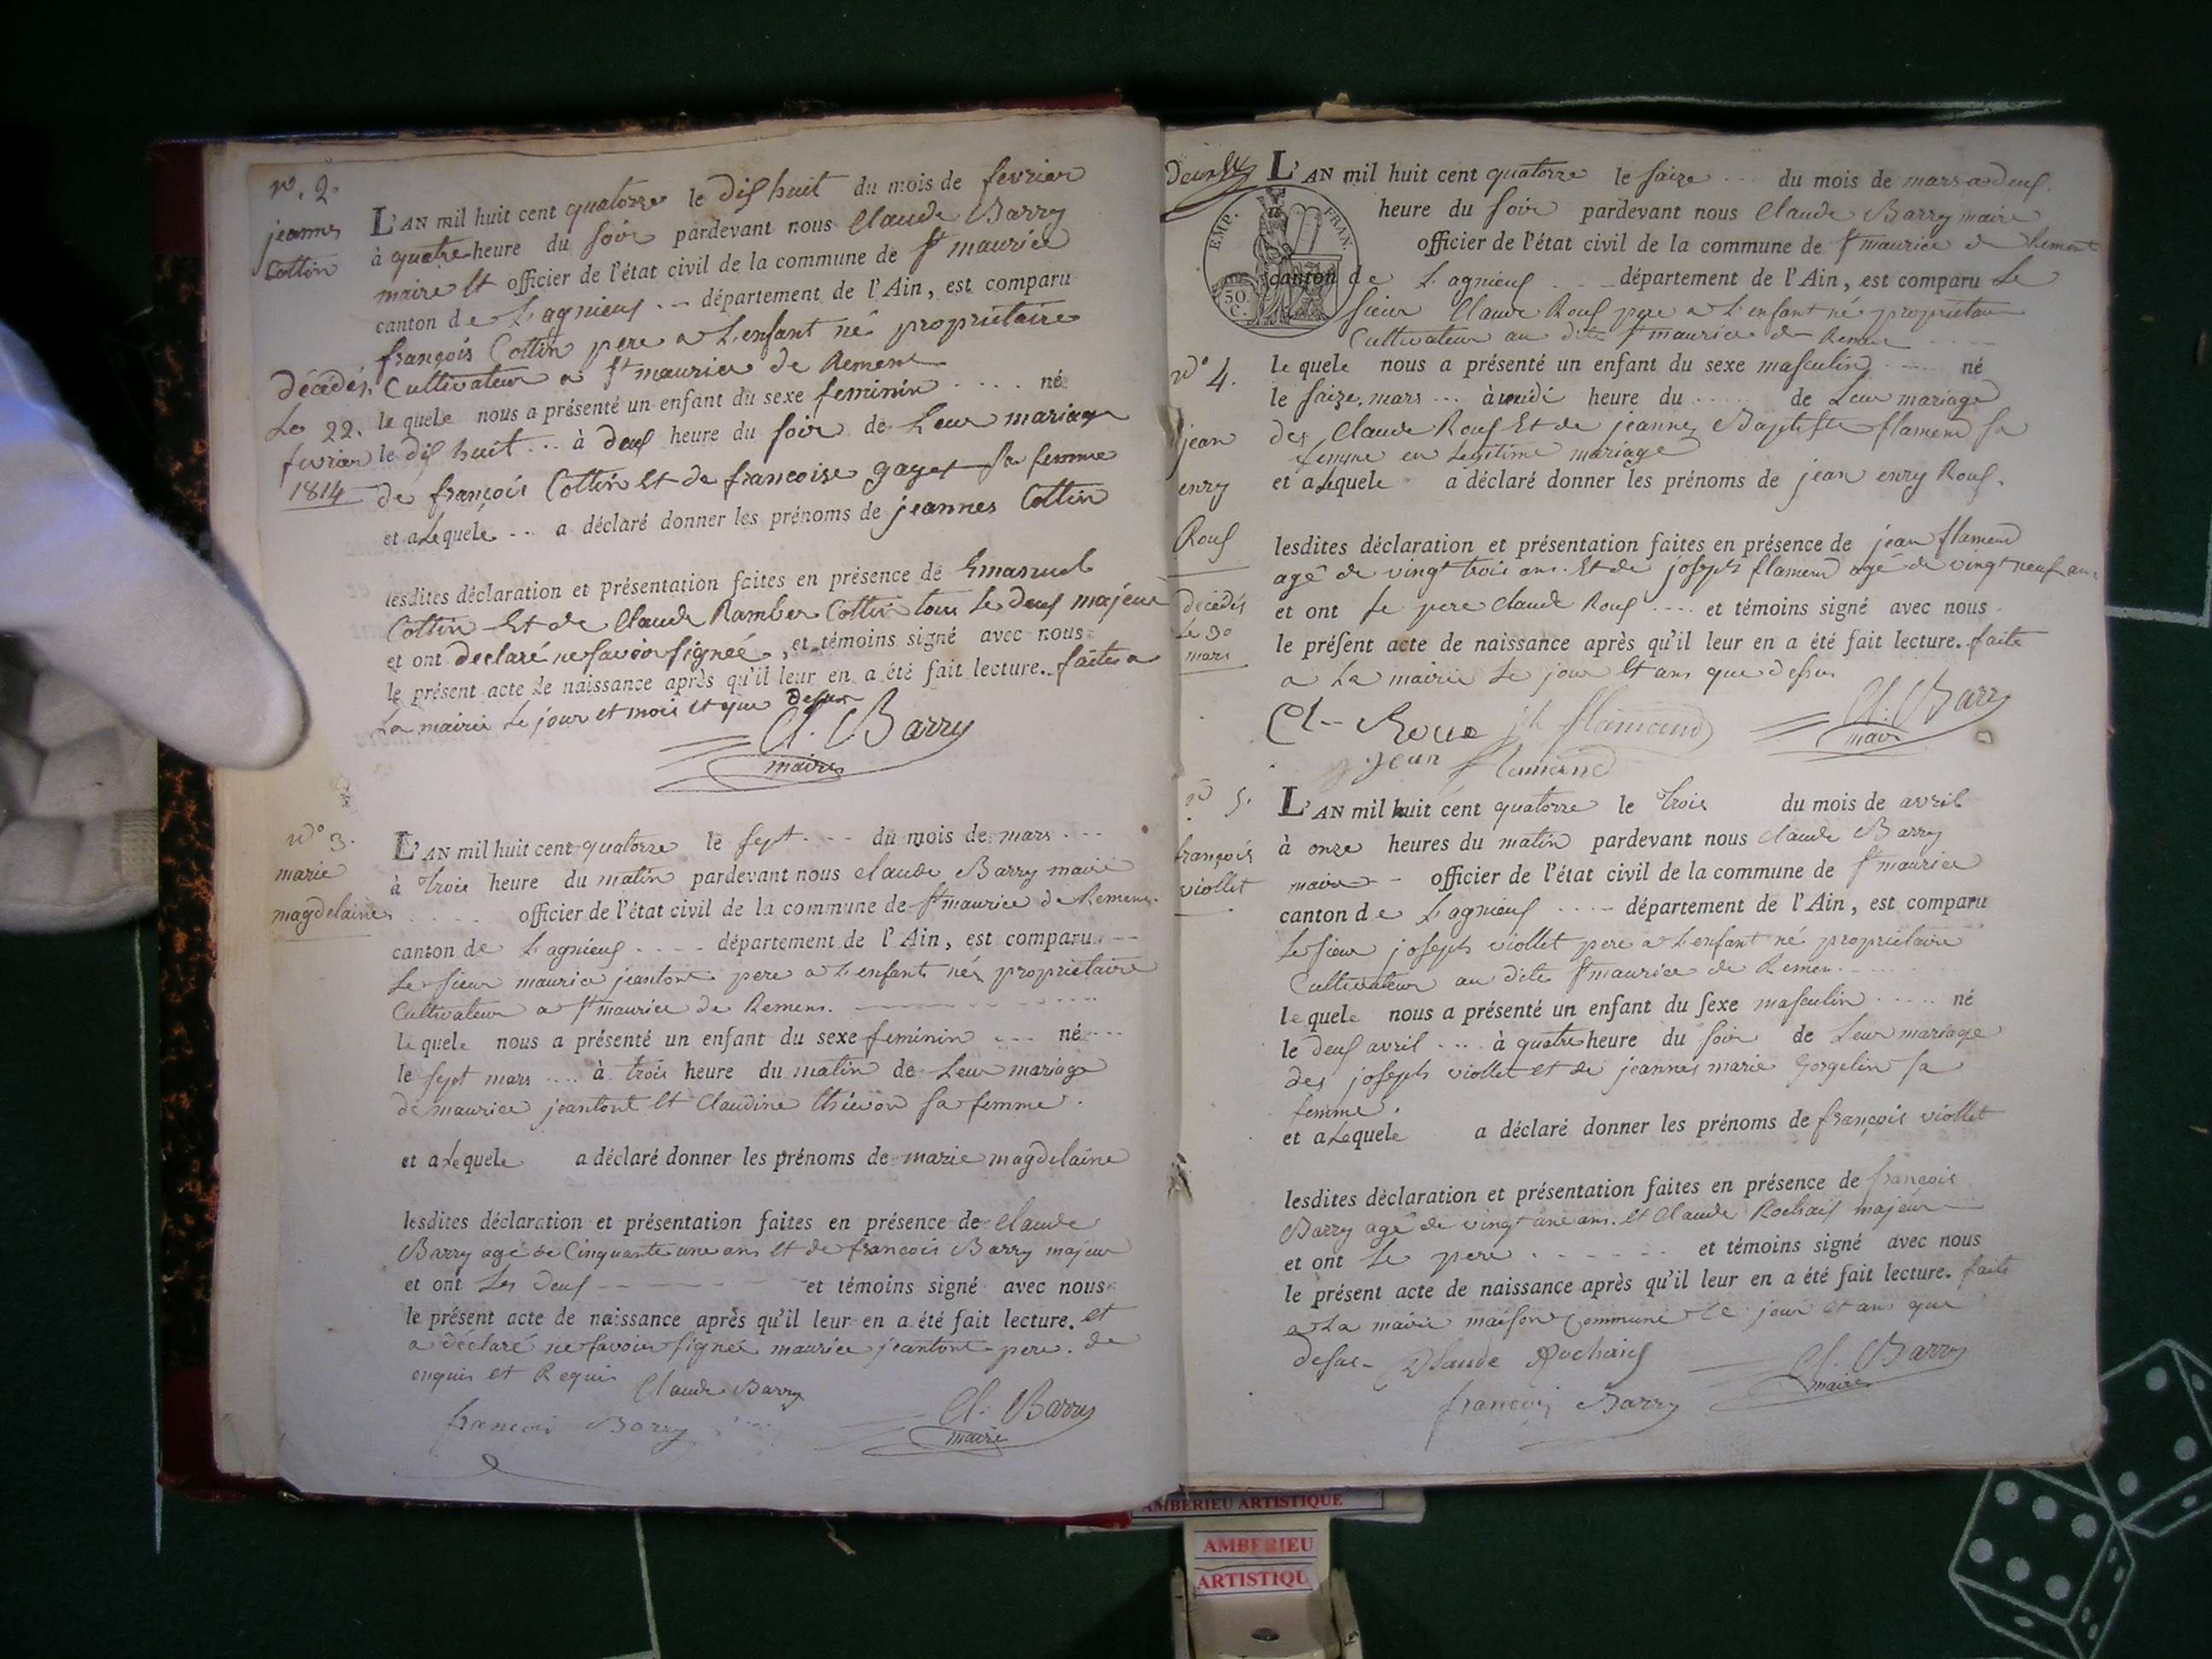 n°. 2.
jeannes
Cottin
L'AN mil huit cent quatorze le dishuit du mois de fevrier
à quatre heure du soir pardevant nous Claude Barry
maire et officier de l'état civil de la commune de St maurice
canton de Lagnieux département de l'Ain, est comparu
françois Cottin pere a L'enfant né propriétaire
Cultivateur a St maurice de Remens
décédés
Le 22.
fevrier
1814
le quele nous a présenté un enfant du sexe feminin .... né
le dishuit ... à deux heure du soir de Leur mariage
de françois Cottin et de francoise gayet sa femme
et a Lequele ... a déclaré donner les prénoms de jeannes Cottin
lesdites déclaration et présentation faites en présence de Emanuel
Cottin Et de Claude Ramber Cottin tous Le deux majeur
et ont declaré ne savoir signée, et témoins signé avec nous
le présent acte de naissance après qu'il leur en a été fait lecture. faites a
La mairie Le jour et mois et que desus
Cl. Barry
maire
n° 3.
marie
magdelaines
L'AN mil huit cent quatorze le sept. -- du mois de mars ...
à trois heure du matin pardevant nous claude Barry maire
.... officier de l'état civil de la commune de St maurice de Remens.
canton de Lagnieux .... département de l'Ain, est comparu --
Le sieur maurice jeantont pere a L'enfant nés propriétaire
Cultivateur a St maurice de Remens.
le quele nous a présenté un enfant du sexe feminin ... né ...
le sept mars .... à trois heure du matin de Leur mariage
de maurice jeantont et Claudine thievon sa femme.
et a Le quele a déclaré donner les prénoms de marie magdelaine
lesdites déclaration et présentation faites en présence de Claude
Barry agé de Cinquante une ans et de francois Barry majeur
et ont Les deux et témoins signé avec nous
le présent acte de naissance après qu'il leur en a été fait lecture. et
a déclaré ne savoir signée maurice jeantont pere. de
enquis et Requis
Claude Barry
francois Barry
Cl. Barry
maire
L'AN mil huit cent quatorze le saize ... du mois de mars a deux.
EMP. FRAN.
50. C.
heure du soir pardevant nous Claude Barry maire
officier de l'état civil de la commune de St maurice de Remens
canton de Lagnieux ... département de l'Ain, est comparu Le
sieur Claude Roux pere a L'enfant né propriétaire
Cultivateur au dite St maurice de Remens
n° 4.
jean
enry
Roux
décédés
Le 30
mars
le quele nous a présenté un enfant du sexe masculin .... né
le saize. mars ... à midi heure du ..... de Leur mariage
des Claude Roux Et de jeannes Baptiste flamend sa
femme en Legitime mariage
et a Lequele a déclaré donner les prénoms de jean enry Roux.
lesdites déclaration et présentation faites en présence de jean flamend
agé de vingt trois ans. Et de joseph flamend agé de vingt neuf ans
et ont Le pere claude Roux .... et témoins signé avec nous
le présent acte de naissance après qu'il leur en a été fait lecture. faite
a La mairie Le jour et ans que desus
Cl-- Roux jh flamand
jean flamand
Cl. Barry
maire
n° 5.
françois
viollet
L'AN mil huit cent quatorze le trois du mois de avril
à onze heures du matin pardevant nous claude Barry
maire -- officier de l'état civil de la commune de St maurice
canton de Lagnieux .... département de l'Ain, est comparu
Le sieur joseph viollet pere a L'enfant né propriétaire
Cultivateur au dite St maurice de Remen.
le quele nous a présenté un enfant du sexe masculin ..... né
le deux avril .... à quatre heure du soir de Leur mariage
des joseph viollet et de jeannes marie gorgelin sa
femme.
et a Lequele a déclaré donner les prénoms de françois viollet
lesdites déclaration et présentation faites en présence de françois
Barry agé de vingt une ans. et Claude Rochaix majeur
et ont Le pere ...... et témoins signé avec nous
le présent acte de naissance après qu'il leur en a été fait lecture. faite
a La mairie maison Commune Le jour et ans que
desus - Claude Rochaix
françois Barry
Cl. Barry
maire
AMBERIEU ARTISTIQUE
AMBERIEU
ARTISTIQU